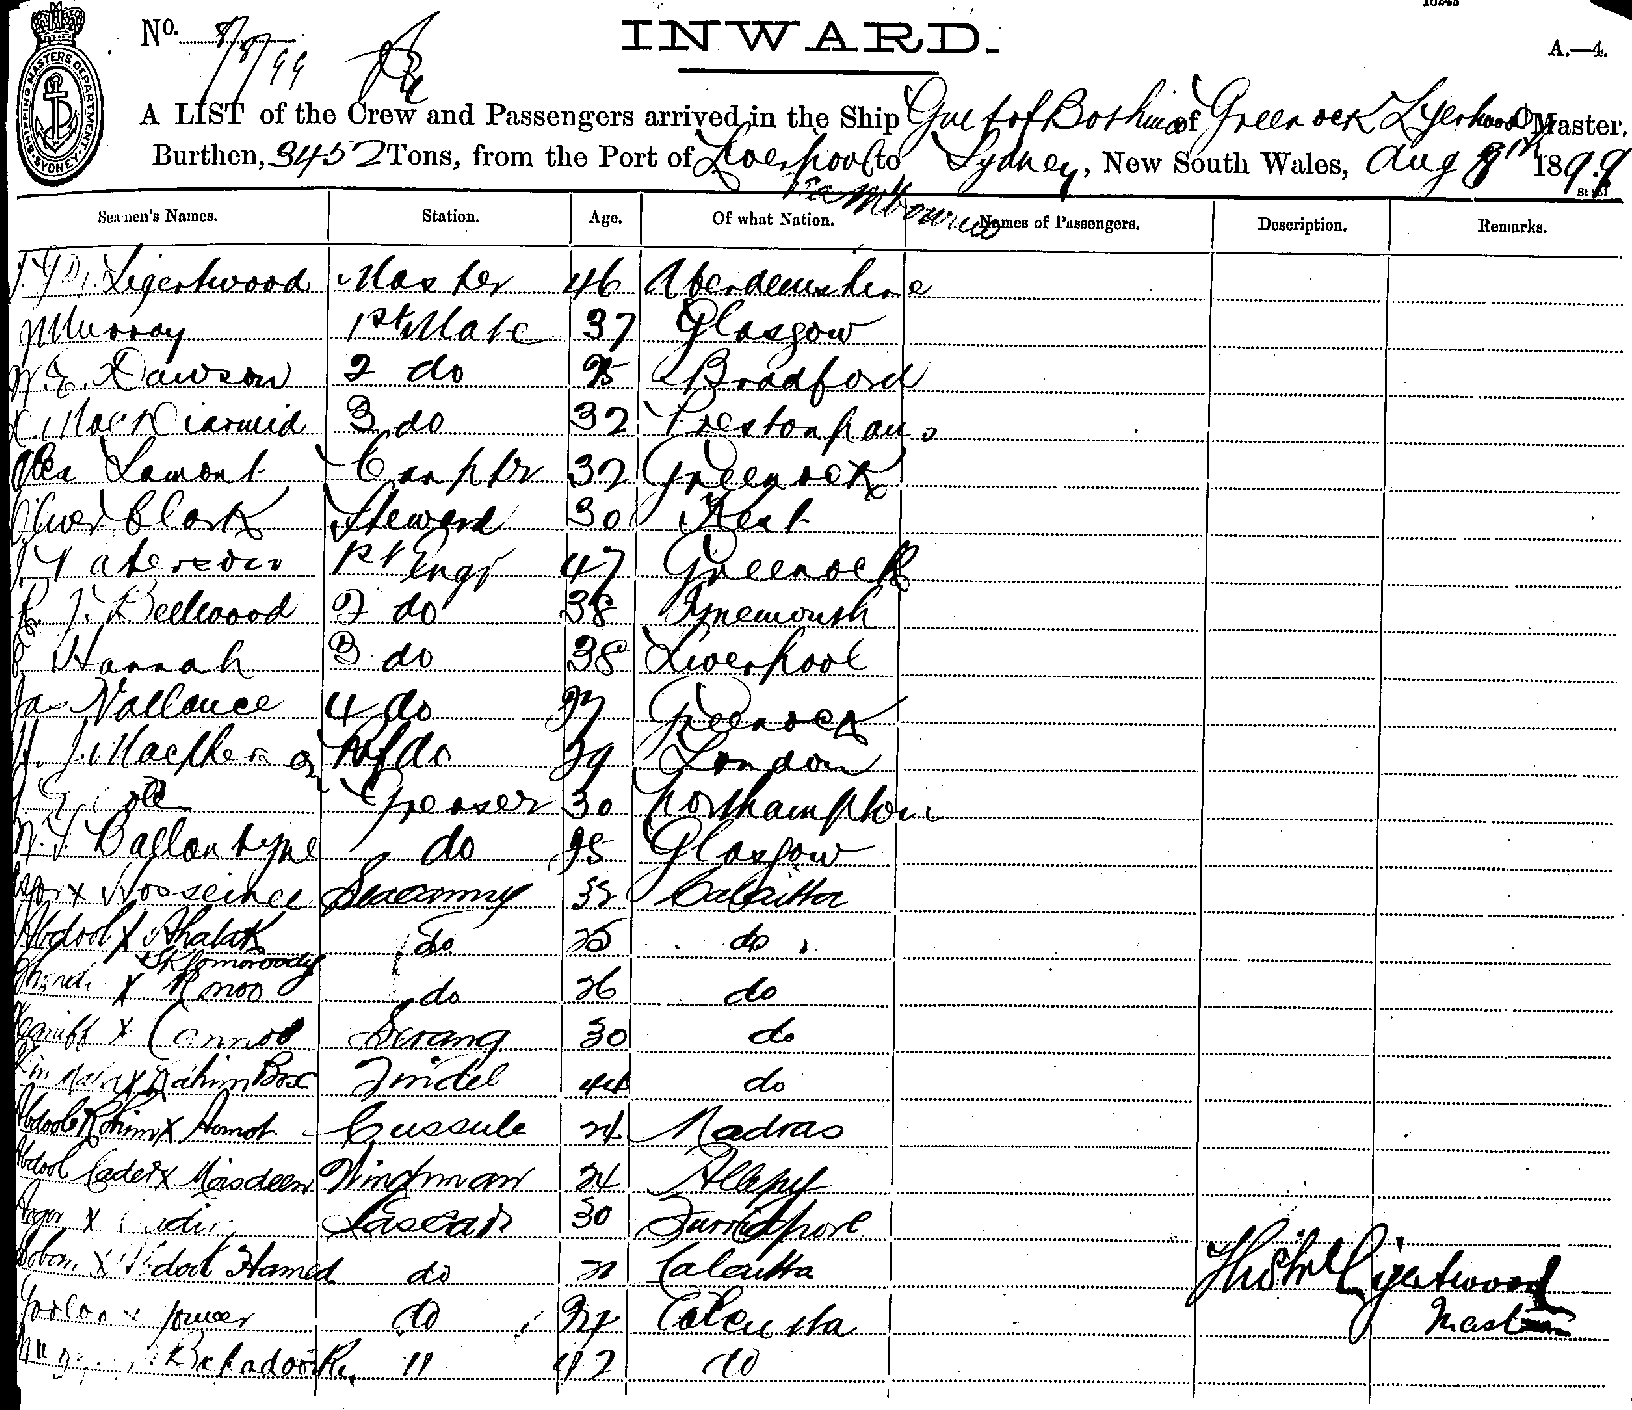 SHIPPING MASTERS DEPARTMENT SYDNEY
No. 8/8/99
INWARD.
A.—4.
A LIST of the Crew and Passengers arrived in the Ship Gulf of Bothnia of Greenock Ligertwood Master,
Burthen, 3452 Tons, from the Port of Liverpool to Sydney, New South Wales, Aug 8th 1899
via Melbourne
Seamen's Names. Station. Age. Of what Nation. Names of Passengers. Description. Remarks.
Ligertwood Master 46 Aberdeenshire
J Murray 1st Mate 37 Glasgow
Dawson 2 do 25 Bradford
MacDiarmid 3 do 32 Prestonpans
Alex Lamont Carptr 32 Greenock
Oliver Clark Steward 30 Kent
J Paterson 1st Engr 47 Greenock
R J. Beellwood 2 do 38 Tynemouth
Hannah 3 do 38 Liverpool
Jas Vallance 4 do 27 Greenock
H. J. Macpherson Ref do 29 London
Cole Greaser 30 Northampton
W. J Ballantyne do 25 Glasgow
x Hosseinee Seacunny 32 Calcutta
Abdool x Khalak do 25 do
x Komoroody
Kmoo do 26 do
x Connoo Serang 30 do
x Rahim Box Tindel 44 do
Abdool Rohim x Asmot Cussub 24 Madras
Abdool Cader x Maisdeen Winchman 24 Allepy
x Lascar 30 Furridpore
x Abdool Hamed do 21 Calcutta
x Jomeer do 24 Calcutta
Bahadoor " 42 do
Ligertwood
Master